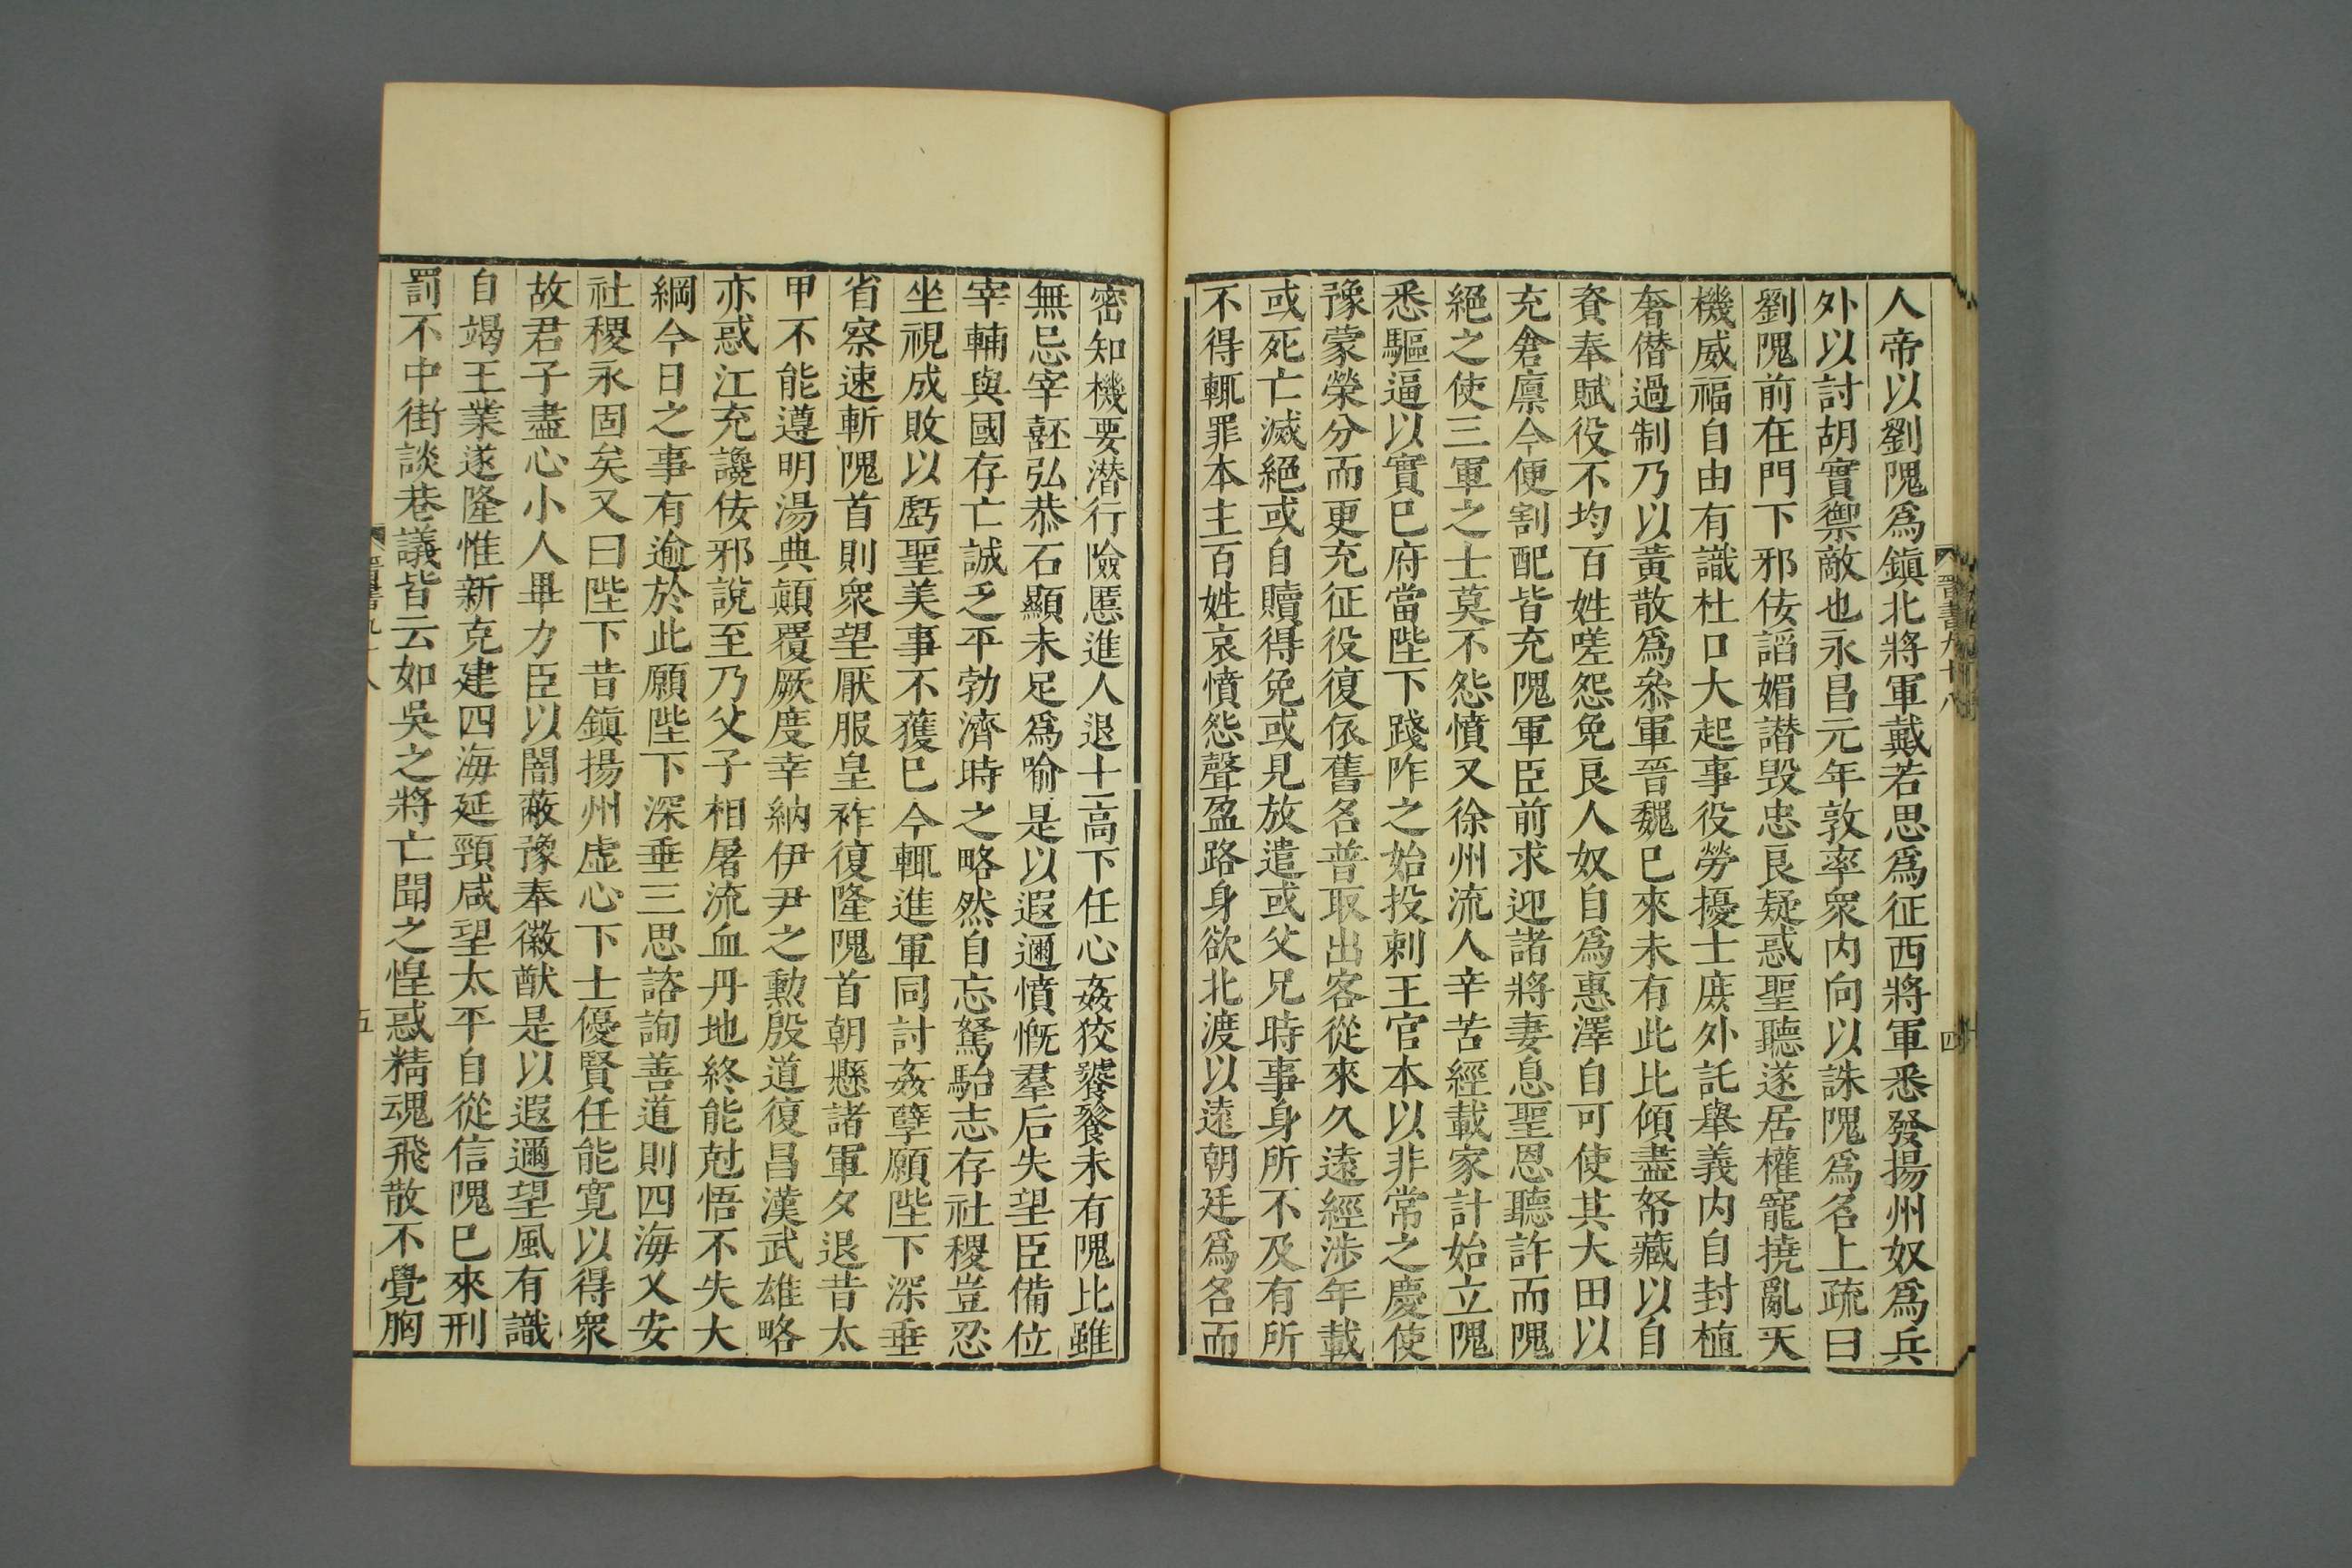 人帝以劉隗爲鎮北將軍戴若思爲征西將軍悉發揚州奴爲兵
外以討胡實禦敵也永昌元年敦率衆内向以誅隗爲名上疏曰
劉隗前在門下邪佞諂媚譖毁忠良疑惑聖聽遂居權寵撓亂天
機威福自由有識杜口大起事役勞擾士庶外託舉義内自封植
奢僭過制乃以黃散爲叅軍晉魏已來未有此比傾盡帑藏以自
資奉賦役不均百姓嗟怨免良人奴自爲惠澤自可使其大田以
充倉廪今便割配皆充隗軍臣前求迎諸將妻息聖恩聽許而隗
絕之使三軍之士莫不怨憤又徐州流人辛苦經載家計始立隗
悉驅逼以實已府當陛下踐阼之始投刺王官本以非常之慶使
豫蒙榮分而更充征役復依舊名普取出客從來久遠經涉年載
或死亡滅絕或自贖得免或見放遣或父兄時事身所不及有所
不得輒罪本主百姓哀憤怨聲盈路身欲北渡以遠朝廷爲名而
晉書九十八
四
密知機要潜行險慝進人退士高下任心姦狡饕餮未有隗比雖
無忌宰嚭弘恭石顯未足爲喻是以遐邇憤慨羣后失望臣備位
宰輔與國存亡誠乏平勃濟時之略然自忘駑駘志存社稷豈忍
坐視成敗以虧聖美事不獲已今輒進軍同討姦孽願陛下深垂
省察速斬隗首則衆望厭服皇祚復隆隗首朝懸諸軍夕退昔太
甲不能遵明湯典顛覆厥度幸納伊尹之勲殷道復昌漢武雄略
亦惑江充讒佞邪說至乃父子相屠流血丹地終能尅悟不失大
綱今日之事有逾於此願陛下深垂三思諮詢善道則四海乂安
社稷永固矣又曰陛下昔鎮揚州虛心下士優賢任能寛以得衆
故君子盡心小人畢力臣以闇蔽豫奉徽猷是以遐邇望風有識
自竭王業遂隆惟新克建四海延頸咸望太平自從信隗已來刑
罰不中街談巷議皆云如吳之將亡聞之惶惑精魂飛散不覺胸
晉書九十八
五